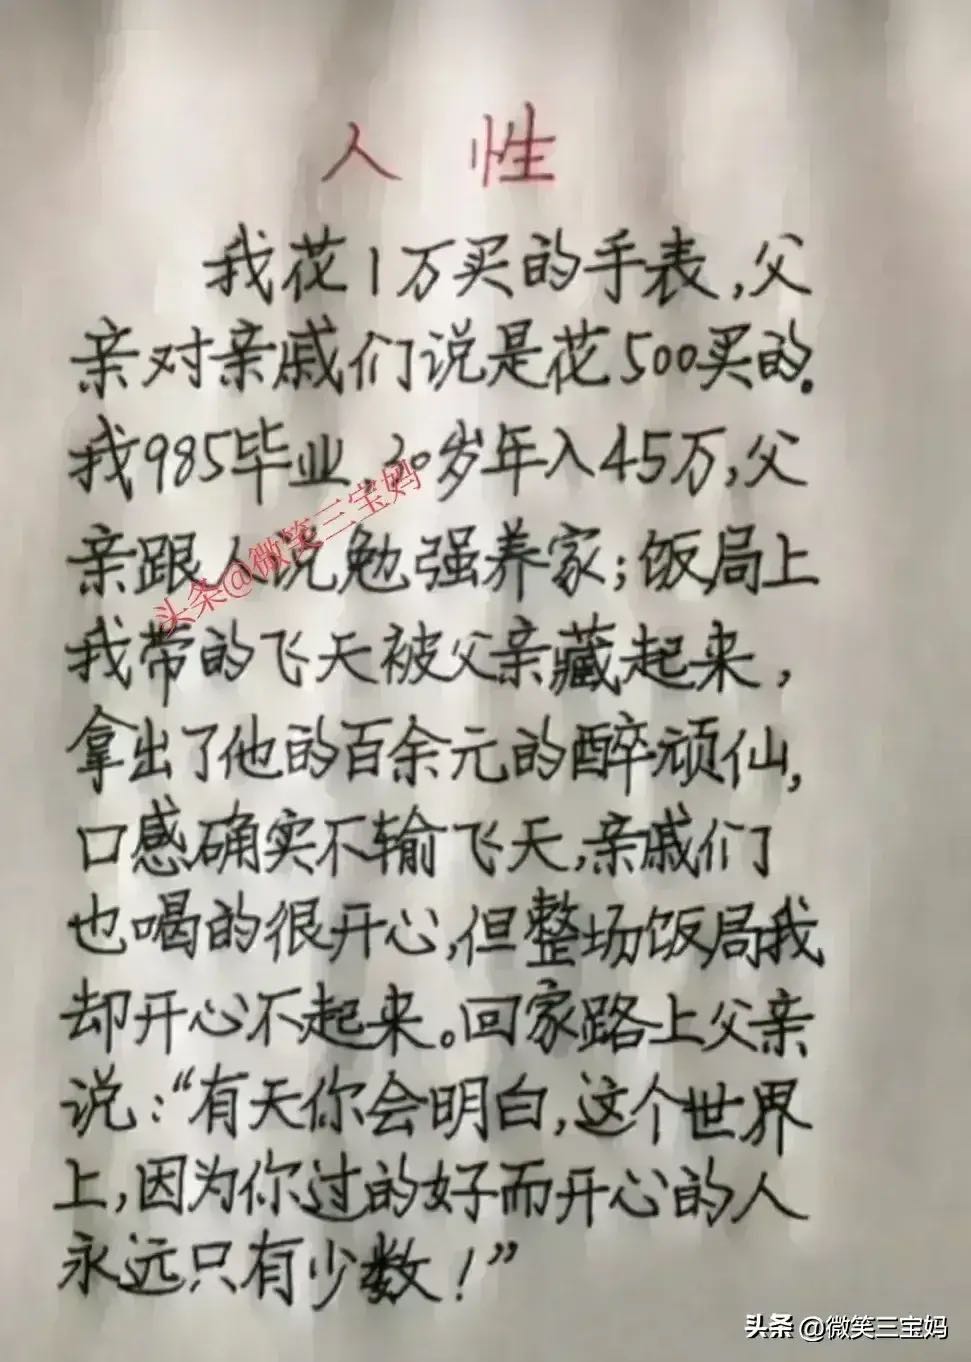 人性
我花1万买的手表,父
亲对亲戚们说是花500买的.
我985毕业,30岁年入45万,父
亲跟人说勉强养家;饭局上
我带的飞天被父亲藏起来,
拿出了他的百余元的醉顽仙,
口感确实不输飞天,亲戚们
也喝的很开心,但整场饭局我
却开心不起来。回家路上父亲
说:“有天你会明白,这个世界
上,因为你过的好而开心的人
永远只有少数!”
头条@微笑三宝妈
头条 @微笑三宝妈